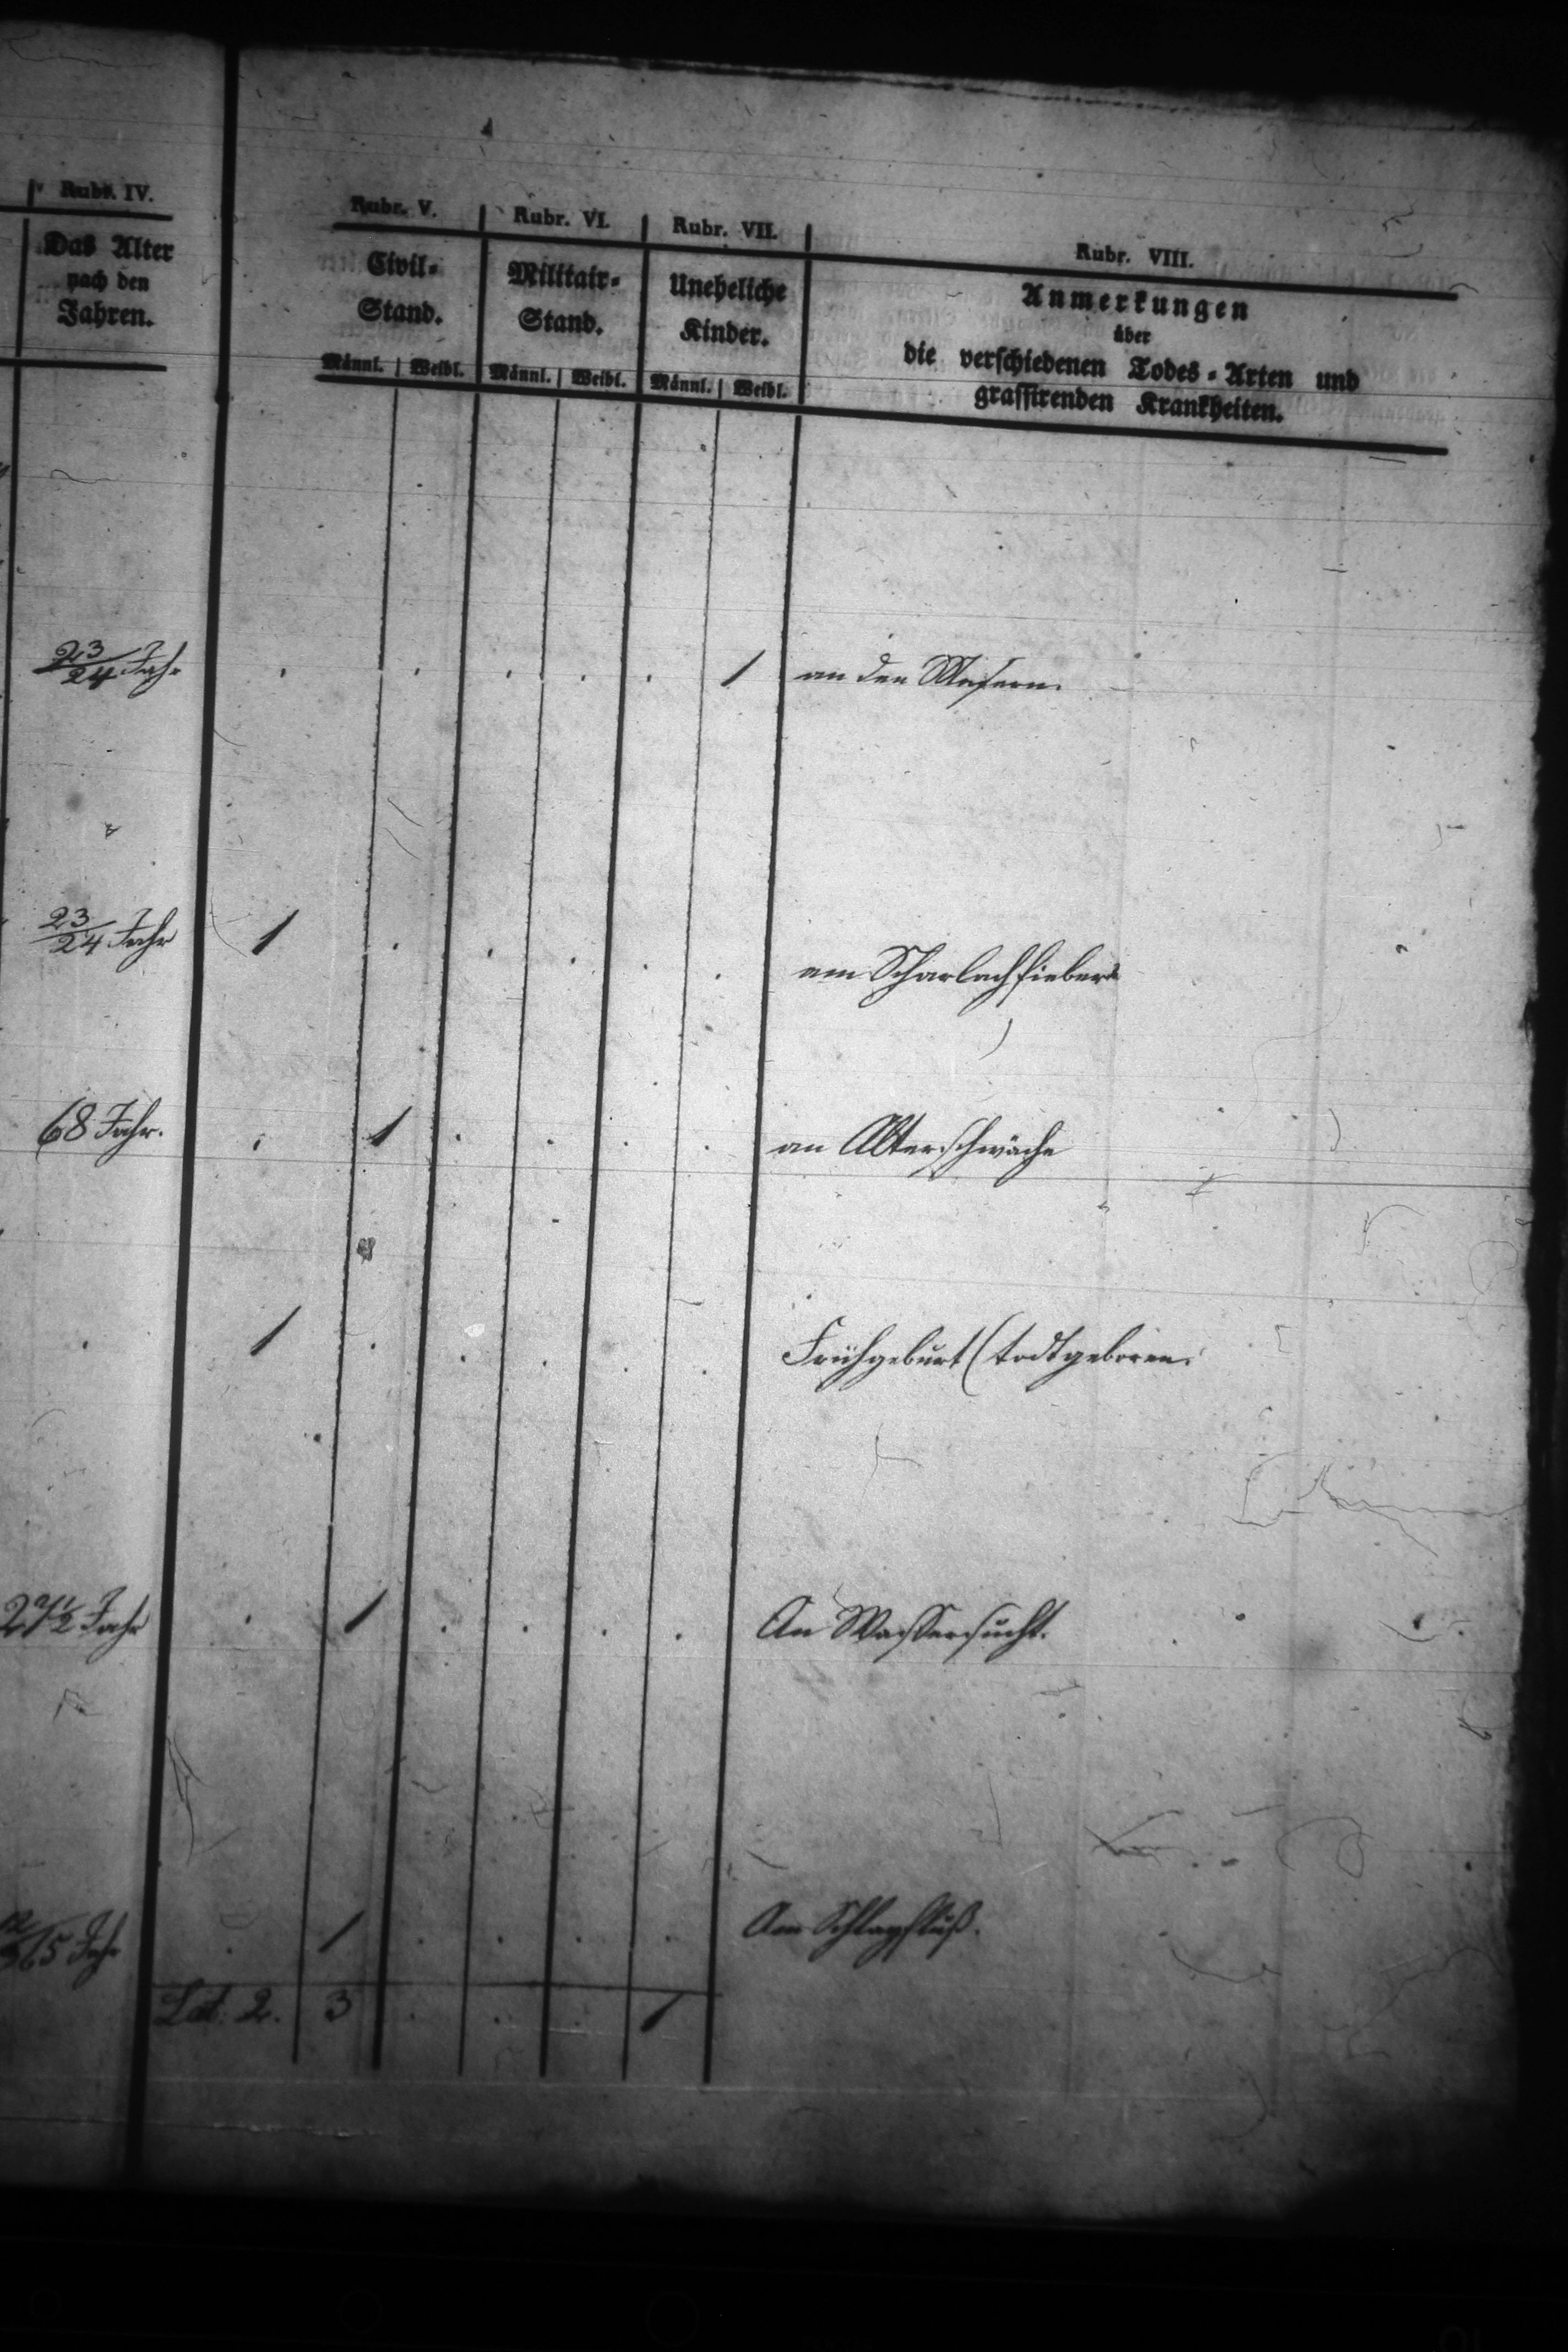 Rubr. IV.
Das Alter
nach den
Jahren.
Rubr. V.
Civil-
Stand.
Männl. | Weibl.
Rubr. VI.
Militair-
Stand.
Männl. | Weibl.
Rubr. VII.
Uneheliche
Kinder.
Männl. | Weibl.
Rubr. VIII.
Anmerkungen
über
die verschiedenen Todes-Arten und
grassirenden Krankheiten.
23/24 Jahr . . . . . 1 an den Masern.
23/24 Jahr 1 . . . . . am Scharlachfieber
68 Jahr. . 1 . . . . an Alterschwäche
. 1 . . . . . Frühgeburt (todtgeboren.
1/2 Jahr . 1 . . . . An Wassersucht.
Jahr . 1 . . . . Am Schlagfluß.
Lat. 2. 3 . . . 1